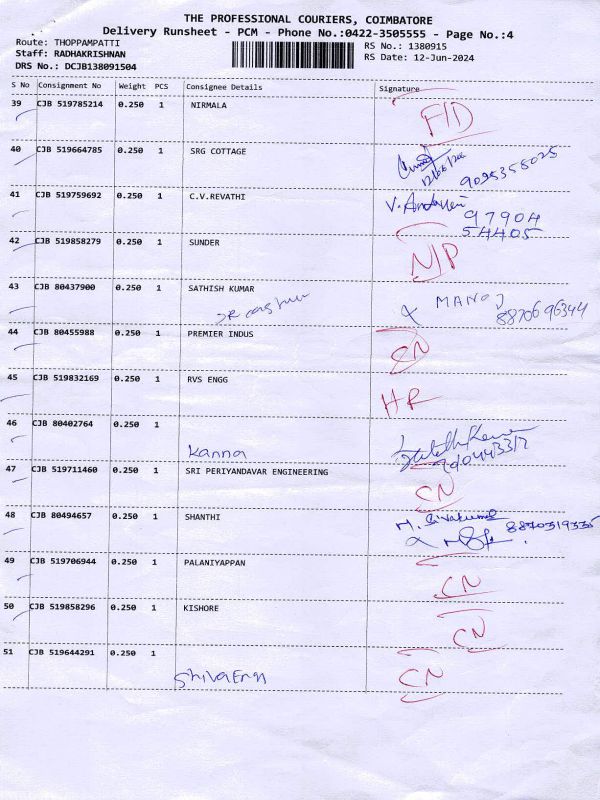 THE PROFESSIONAL COURIERS, COIMBATORE
Delivery Runsheet - PCM - Phone No.:0422-3505555 - Page No.:4
Route: THOPPAMPATTI RS No.: 1380915
Staff: RADHAKRISHNAN RS Date: 12-Jun-2024
DRS No.: DCJB138091504
S No Consignment No Weight PCS Consignee Details Signature
39 CJB 519785214 0.250 1 NIRMALA
40 CJB 519664785 0.250 1 SRG COTTAGE
9095358025
41 CJB 519759692 0.250 1 C.V.REVATHI
97904
54405
42 CJB 519858279 0.250 1 SUNDER N/P
43 CJB 80437900 0.250 1 SATHISH KUMAR
MANOJ
8870696344
44 CJB 80455988 0.250 1 PREMIER INDUS CN
45 CJB 519832169 0.250 1 RVS ENGG HR
46 CJB 80402764 0.250 1
Kanna
47 CJB 519711460 0.250 1 SRI PERIYANDAVAR ENGINEERING CN
48 CJB 80494657 0.250 1 SHANTHI M. Sivakumar
49 CJB 519706944 0.250 1 PALANIYAPPAN CN
50 CJB 519858296 0.250 1 KISHORE CN
51 CJB 519644291 0.250 1 CN